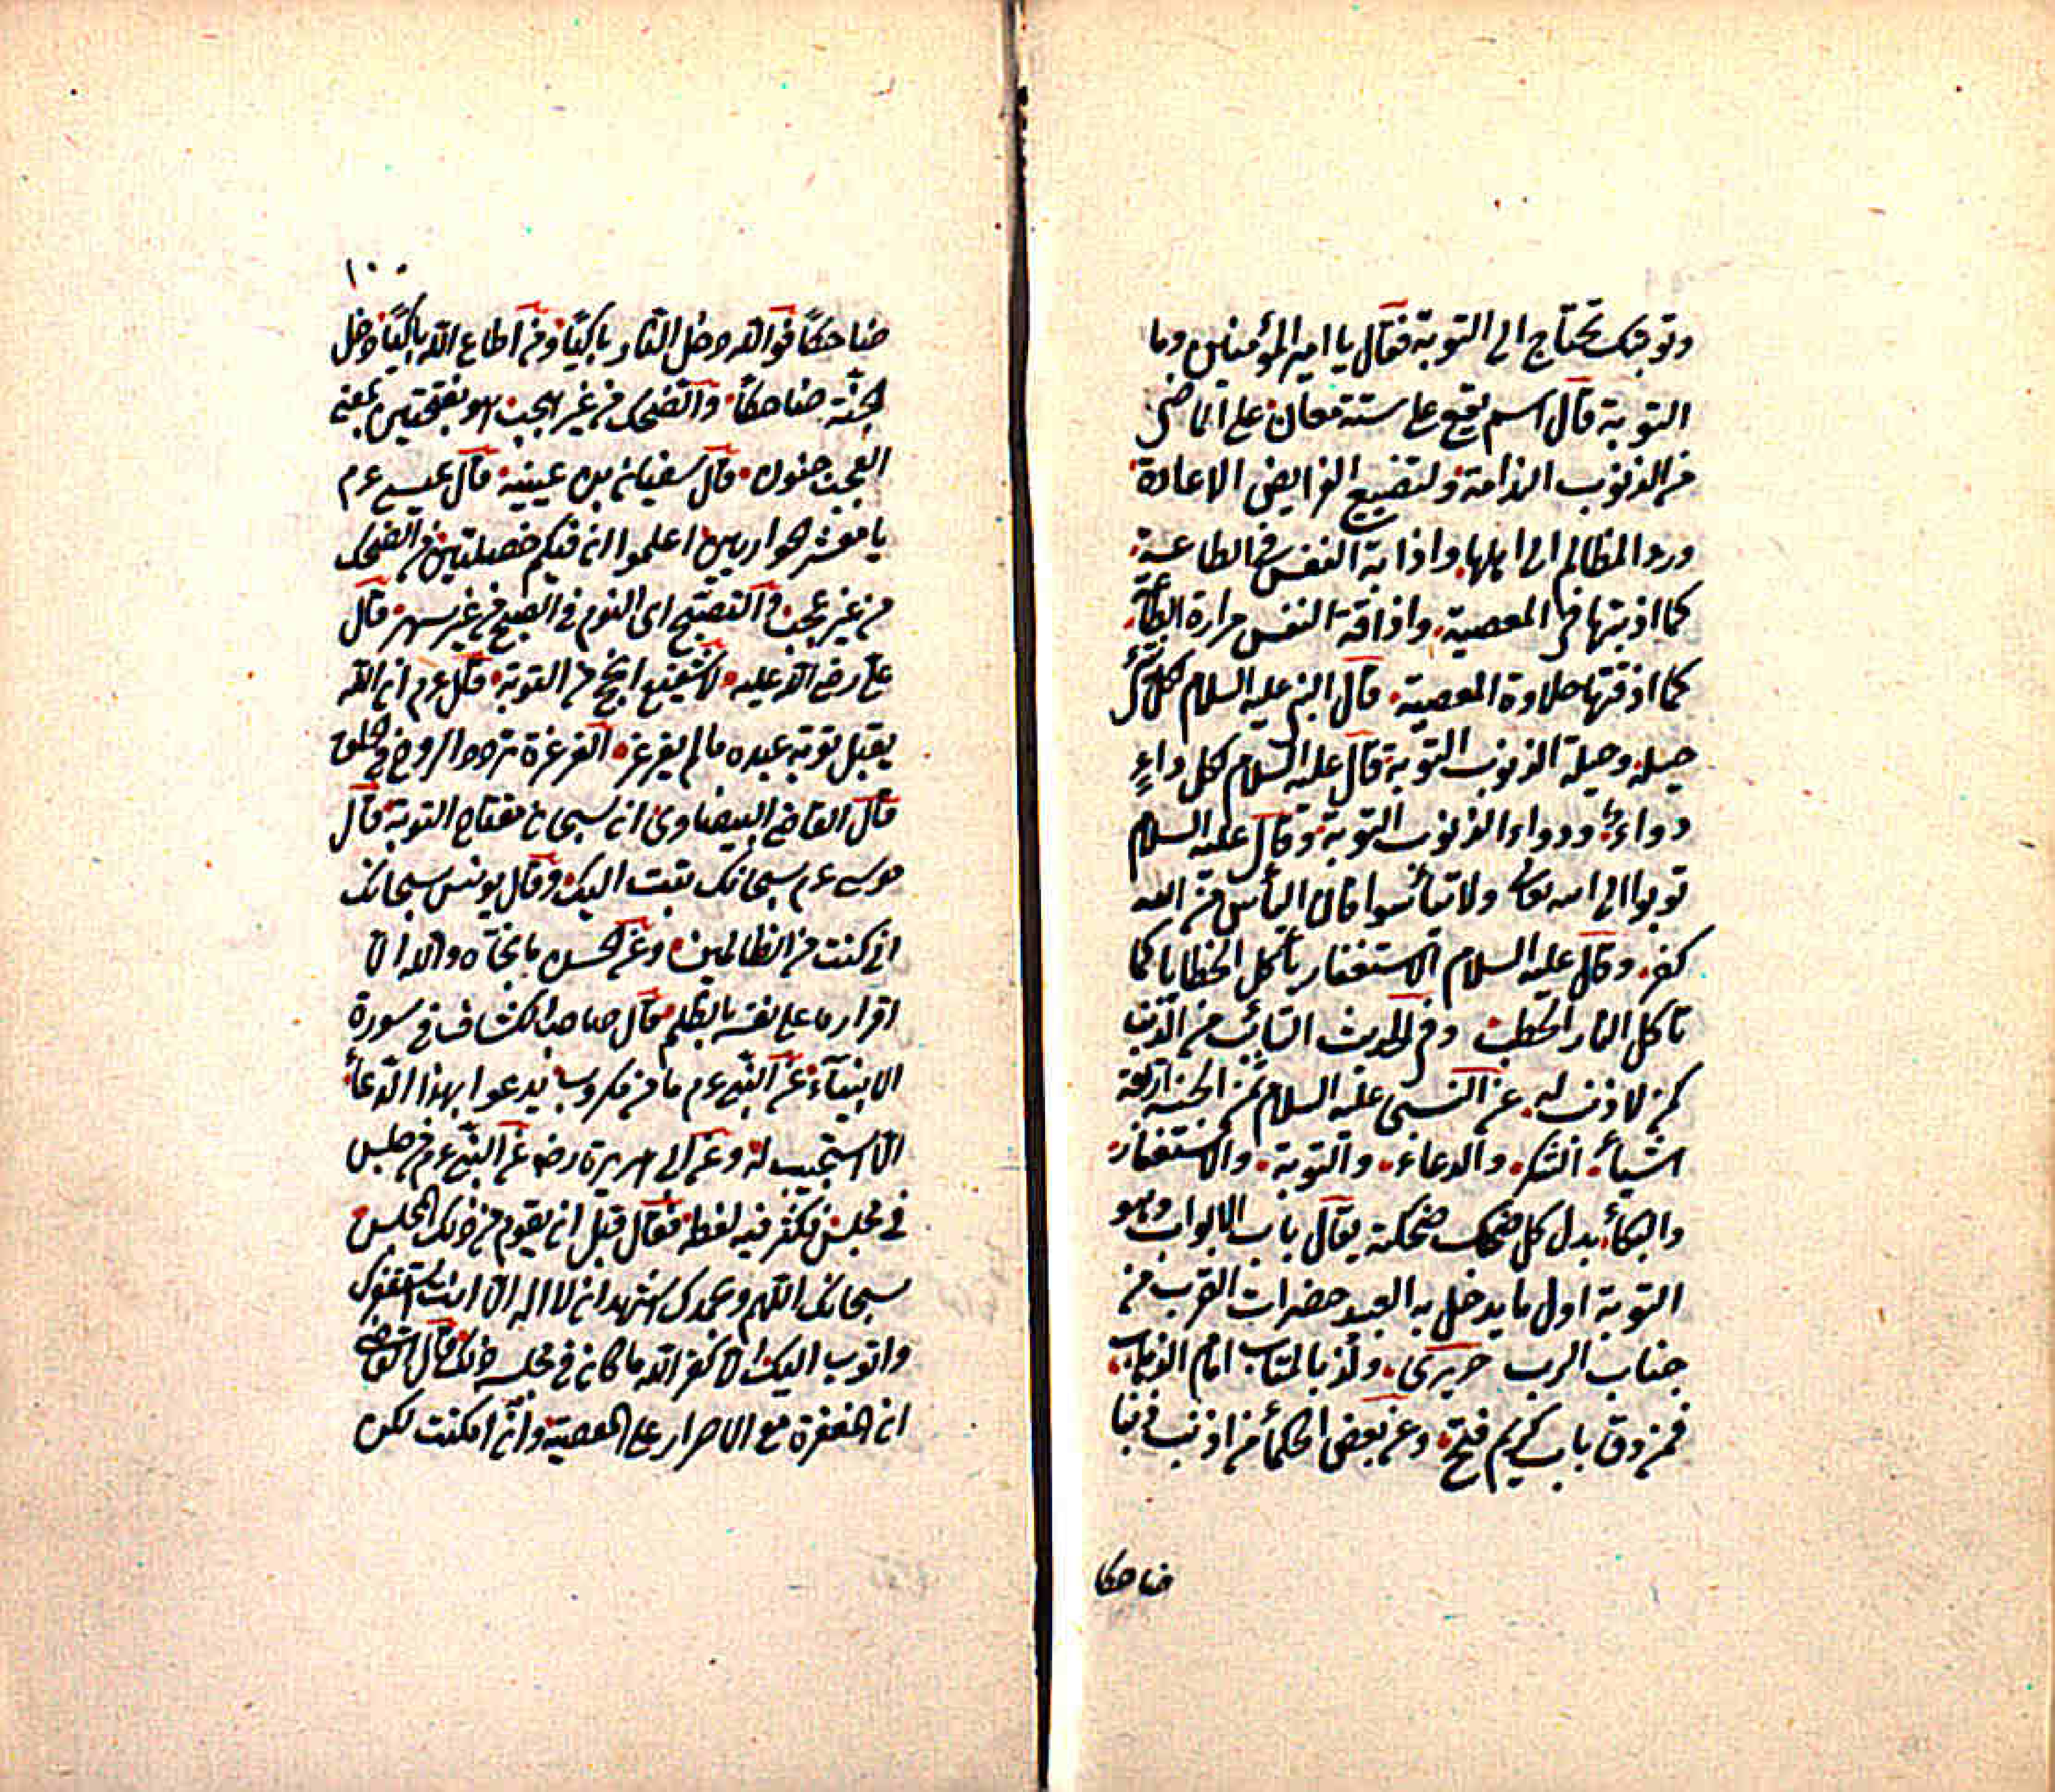 وتوبتك تحتاج الى التوبة فقال يا امير المؤمنين وما
التوبة قال اسم يقع على ستة معان على الماضى
من الذنوب الندامة ولتضييع الفرايض الاعادة
ورد المظالم الى اهلها واذابة النفس فى الطاعة
كما اذبتها فى المعصية واذاقة النفس مرارة الطاعة
كما اذقتها حلاوة المعصية قال النبى عليه السلام لكل شئ
حيلة وحيلة الذنوب التوبة قال عليه السلام لكل داءٍ
دواء ودواء الذنوب التوبة وقال عليه السلام
توبوا الى الله تعالى ولا تيأسوا فان اليأس من الله
كفر وقال عليه السلام الاستغفار يأكل الخطايا كما
تأكل النار الحطب وفى الحديث التائب من الذنب
كمن لا ذنب له عن النبى عليه السلام ثمن الجنة اربعة
اشياء الشكر والدعاء والتوبة والاستغفار
والبكاء بدل كل ضحك ضحكته يقال باب الابواب وهو
التوبة اول ما يدخل به العبد حضرات القرب من
جناب الرب حريرى ولذ بالمتاب امام الذهاب
فمن دق باب كريم فتح وعن بعض الحكماء من اذنب ذنبا
ضاحكا
١٠
ضاحكًا فوالله دخل النار باكيًا ومن اطاع الله باكيًا دخل
الجنة ضاحكًا والضحك من غير العجب هو بفتحتين بمعنى
العجب جنون قال سفيان بن عيينه قال عيسى عم
يا معشر الحواريين اعلموا ان فيكم خصلتين من الضحك
من غير عجب والتصبح اى النوم فى الصبح من غير سهر قال
على رضى الله عليه لا شفيع انجح من التوبة قال عم ان الله
يقبل توبة عبده ما لم يغرغر الغرغرة تردد الروح فى الحلق
قال القاضى البيضاوى ان سبحان مفتاح التوبة قال
موسى عم سبحانك تبت اليك وقال يونس سبحانك
انى كنت من الظالمين وعن الحسن ما نجاه والله الا
اقراره على نفسه بالظلم قال صاحب الكشاف فى سورة
الانبياء عن النبى عم ما من مكروب يدعو بهذا الدعاء
الا استجيب له وعن ابى هريرة رضه عن النبى عم من جلس
فى مجلس فكثر فيه لغطه فقال قبل ان يقوم من ذلك المجلس
سبحانك اللهم وبحمدك اشهد ان لا اله الا انت استغفرك
واتوب اليك الا كفر الله ما كان فى مجلسه ذلك قال القاضى
ان المغفرة مع الاصرار على المعصية وان امكنت لكن